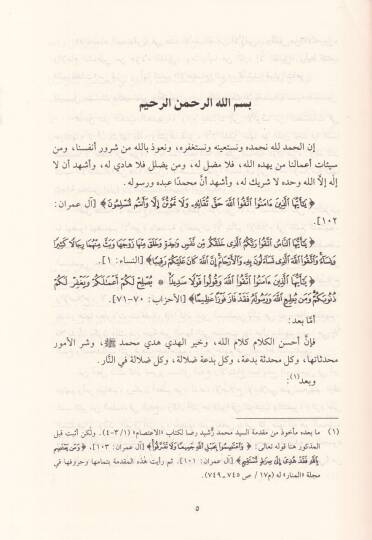 بسم الله الرحمن الرحيم
إن الحمد لله نحمده ونستعينه ونستغفره، ونعوذ بالله من شرور أنفسنا، ومن
سيئات أعمالنا من يهده الله، فلا مضل له، ومن يضلل فلا هادي له، وأشهد أن لا
إله إلَّا الله وحده لا شريك له، وأشهد أنَّ محمدًا عبده ورسوله.
﴿يَٰٓأَيُّهَا ٱلَّذِينَ ءَامَنُوا۟ ٱتَّقُوا۟ ٱللَّهَ حَقَّ تُقَاتِهِۦ وَلَا تَمُوتُنَّ إِلَّا وَأَنتُم مُّسْلِمُونَ﴾ [آل عمران:
١٠٢].
﴿يَٰٓأَيُّهَا ٱلنَّاسُ ٱتَّقُوا۟ رَبَّكُمُ ٱلَّذِى خَلَقَكُم مِّن نَّفْسٍ وَٰحِدَةٍ وَخَلَقَ مِنْهَا زَوْجَهَا وَبَثَّ مِنْهُمَا رِجَالًا كَثِيرًا
وَنِسَآءً وَٱتَّقُوا۟ ٱللَّهَ ٱلَّذِى تَسَآءَلُونَ بِهِۦ وَٱلْأَرْحَامَ إِنَّ ٱللَّهَ كَانَ عَلَيْكُمْ رَقِيبًا﴾ [النساء: ١].
﴿يَٰٓأَيُّهَا ٱلَّذِينَ ءَامَنُوا۟ ٱتَّقُوا۟ ٱللَّهَ وَقُولُوا۟ قَوْلًا سَدِيدًا * يُصْلِحْ لَكُمْ أَعْمَٰلَكُمْ وَيَغْفِرْ لَكُمْ
ذُنُوبَكُمْ وَمَن يُطِعِ ٱللَّهَ وَرَسُولَهُۥ فَقَدْ فَازَ فَوْزًا عَظِيمًا﴾ [الأحزاب: ٧٠-٧١].
أمَّا بعد:
فإنَّ أحسن الكلام كلام الله، وخير الهدي هدي محمد ﷺ، وشر الأمور
محدثاتها، وكل محدثة بدعة، وكل بدعة ضلالة، وكل ضلالة في النَّار.
وبعد(١):
(١) ما بعده مأخوذ من مقدمة السيد محمد رشيد رضا لكتاب «الاعتصام» (١/ ٣-٤). ولكن أثبت قبل
المذكور هنا قوله تعالى: ﴿وَٱعْتَصِمُوا۟ بِحَبْلِ ٱللَّهِ جَمِيعًا وَلَا تَفَرَّقُوا۟﴾ [آل عمران: ١٠٣]، ﴿وَمَن يَعْتَصِم
بِٱللَّهِ فَقَدْ هُدِىَ إِلَىٰ صِرَٰطٍ مُّسْتَقِيمٍ﴾ [آل عمران: ١٠١]. ثم رأيت هذه المقدمة بتمامها وحروفها في
مجلة «المنار» له (م١٧/ ص ٧٤٥-٧٤٩).
٥